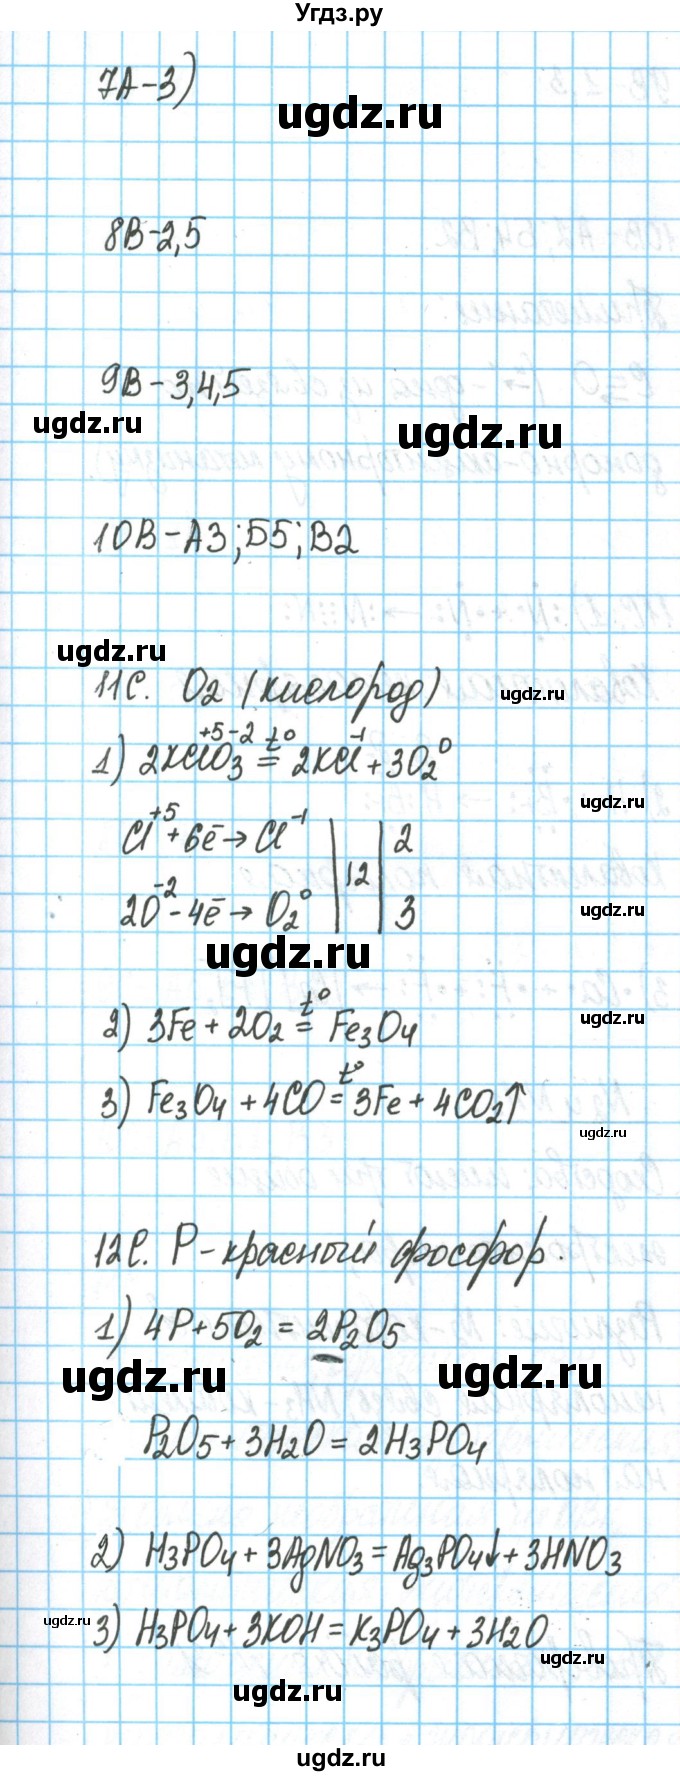 Угдз.ру
7А-3)
ugdz.ru
8В-2,5
9В-3,4,5
ugdz.ru
ugdz.ru
10В-А3;Б5;В2
ugdz.ru
11С. O₂ (кислород)
ugdz.ru
+5 -2 t° -1 0
1) 2KClO₃ = 2KCl + 3O₂
ugdz.ru
Cl⁺⁵ + 6ē → Cl⁻¹ | 12 | 2
2O⁻² - 4ē → O₂⁰ | | 3
ugdz.ru
ugdz.ru
2) 3Fe + 2O₂ =t° Fe₃O₄
ugdz.ru
3) Fe₃O₄ + 4CO =t° 3Fe + 4CO₂↑
ugdz.ru
12С. P-красный фосфор.
1) 4P + 5O₂ = 2P₂O₅
ugdz.ru
ugdz.ru
P₂O₅ + 3H₂O = 2H₃PO₄
2) H₃PO₄ + 3AgNO₃ = Ag₃PO₄↓ + 3HNO₃
ugdz.ru
3) H₃PO₄ + 3KOH = K₃PO₄ + 3H₂O
ugdz.ru
ugdz.ru
ugdz.ru